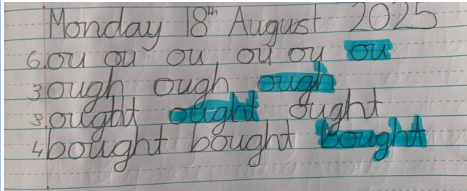 Monday 18th August 2025
6.ou ou ou ou ou ou
3ough ough ough
3.ought ought ought
4bought bought bought